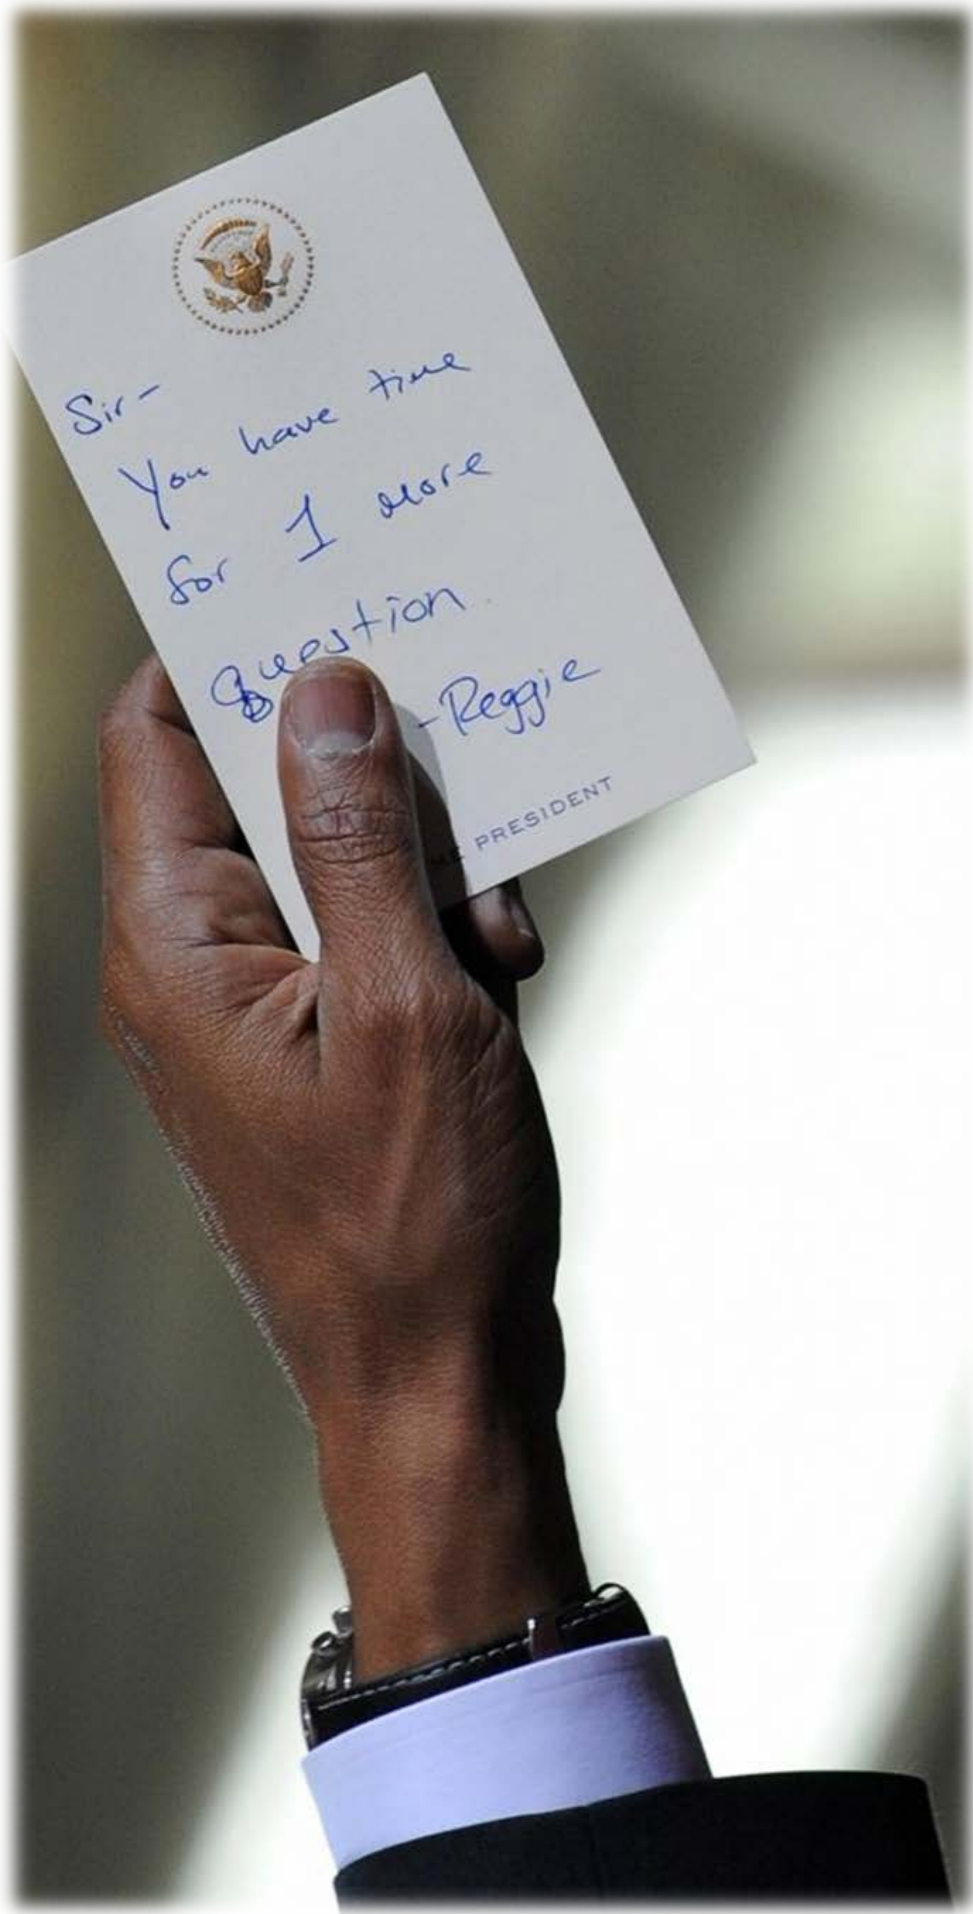 Sir-
You have time
for 1 more
question.
-Reggie
PRESIDENT